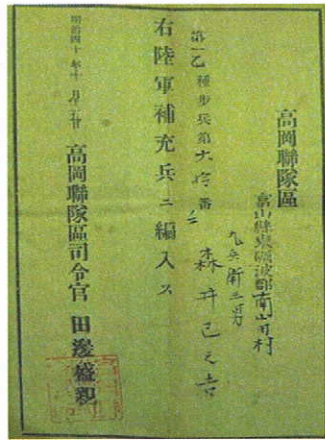 高岡聯隊區
富山縣東礪波郡南山田村
九兵衛三男
森井已之吉
第一乙種歩兵第六拾番
右陸軍補充兵ニ編入ス
明治四十年十月廿日
高岡聯隊區司令官 田邊盛親